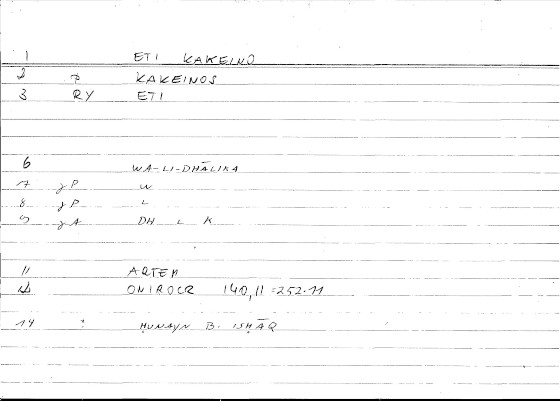 1 ETI KAKEINO
2 KAKEINOS
3 RY ETI
6 WA-LI-DHĀLIKA
7 γP W
8 γP L
9 γA DH L K
11 ARTEM
ONIROCR 140,11=252.11
14 ? ḤUNAYN B. ISḤĀQ